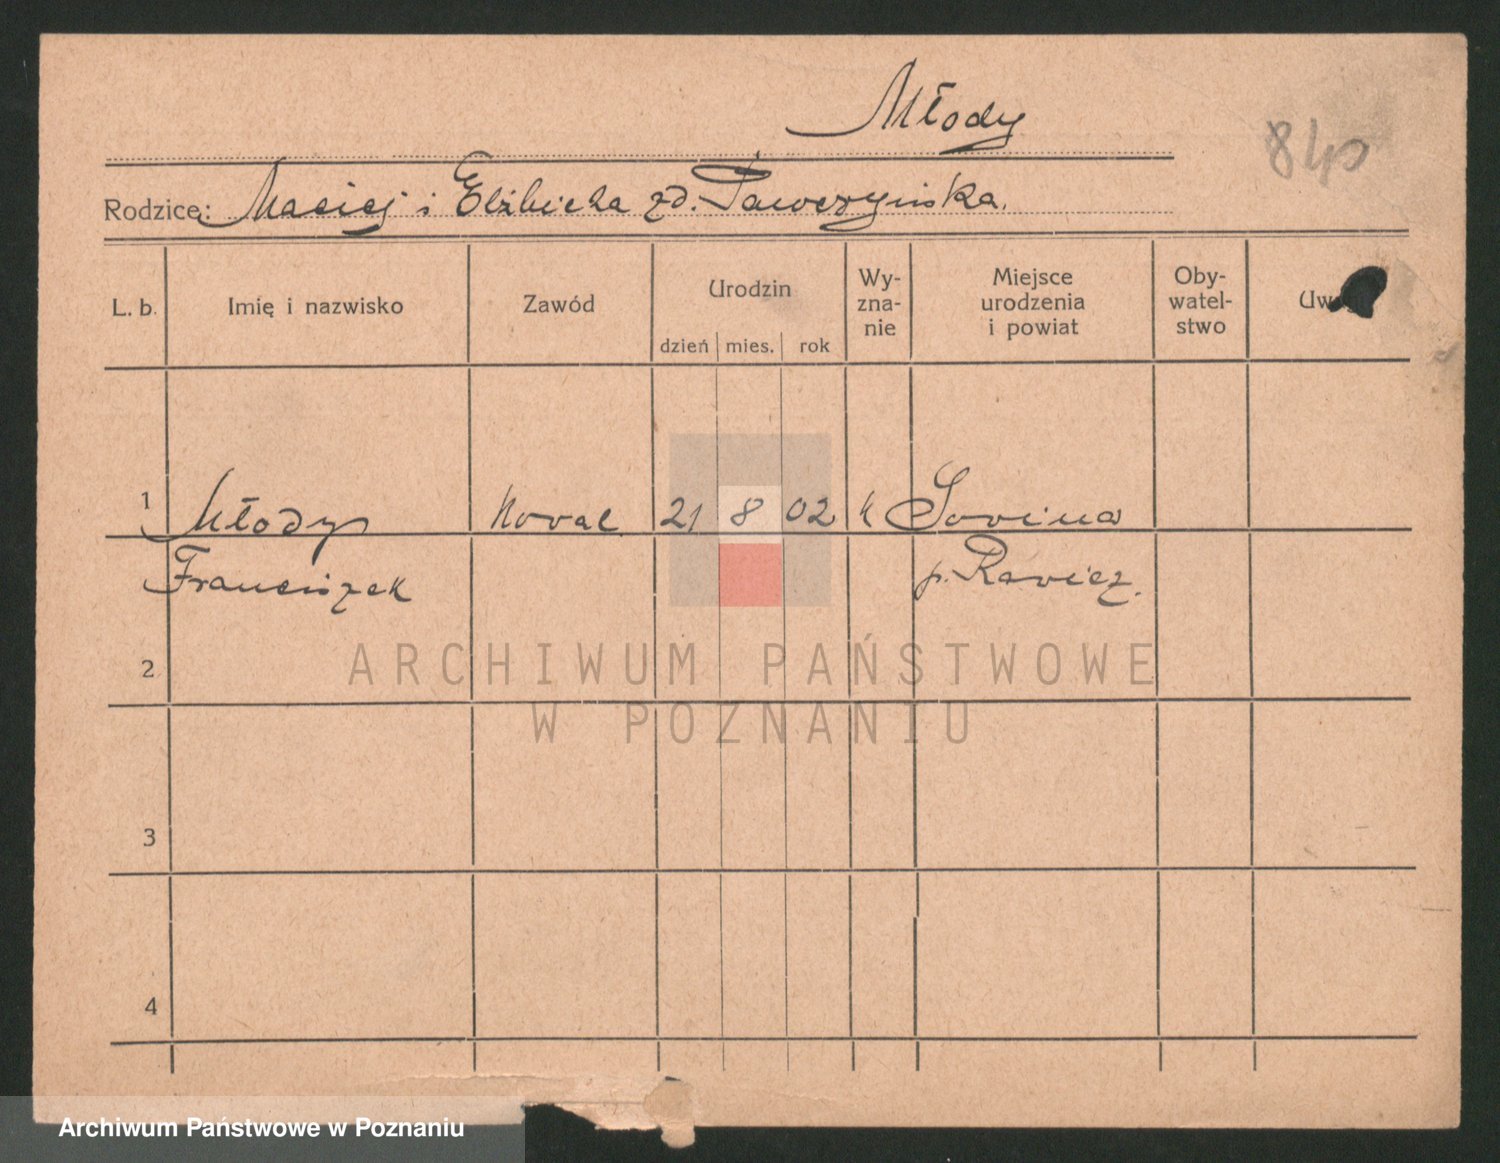 Młody
840
Rodzice: Maciej i Elżbieta zd. Pawczyńska.
L. b. Imię i nazwisko Zawód Urodzin dzień mies. rok Wy- zna- nie Miejsce urodzenia i powiat Oby- watel- stwo
1 Młody 21 8 02 k Sovina
Franciszek p. Ravicz.
2
3
4
ARCHIWUM PAŃSTWOWE
W POZNANIU
Archiwum Państwowe w Poznaniu